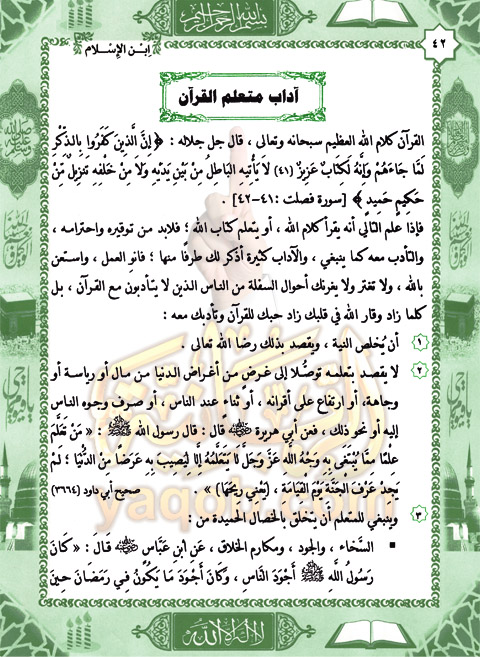 بسم الله الرحمن الرحيم
٤٢
ابن الإسلام
آداب متعلم القرآن
القرآن كلام الله العظيم سبحانه وتعالى ، قال جل جلاله : ﴿ إِنَّ الَّذِينَ كَفَرُوا بِالذِّكْرِ
لَمَّا جَاءَهُمْ وَإِنَّهُ لَكِتَابٌ عَزِيزٌ (٤١) لَا يَأْتِيهِ الْبَاطِلُ مِنْ بَيْنِ يَدَيْهِ وَلَا مِنْ خَلْفِهِ تَنْزِيلٌ مِنْ
حَكِيمٍ حَمِيدٍ ﴾ [سورة فصلت :٤١-٤٢] .
فإذا علم التالي أنه يقرأ كلام الله ، أو يتعلم كتاب الله ؛ فلابد من توقيره واحترامه ،
والتأدب معه كما ينبغي ، والآداب كثيرة أذكر لك طرفا منها ؛ فانو العمل ، واستعن
بالله ، ولا تغتر ولا يغرنك أحوال السفلة من الناس الذين لا يتأدبون مع القرآن ، بل
كلما زاد وقار الله في قلبك زاد حبك للقرآن وتأدبك معه :
١ أن يُخلص النية ، ويقصد بذلك رضا الله تعالى .
٢ لا يقصد بتعلمه توصُّلا إلى غرض من أغراض الدنيا من مال أو رياسة أو
وجاهة، أو ارتفاع على أقرانه ، أو ثناء عند الناس ، أو صرف وجوه الناس
إليه أو نحو ذلك ، فعن أبي هريرة ﷺ قال : قال رسول الله ﷺ : « مَنْ تَعَلَّمَ
عِلْمًا مِمَّا يُبْتَغَى بِهِ وَجْهُ اللَّهِ عَزَّ وَجَلَّ لَا يَتَعَلَّمُهُ إِلَّا لِيُصِيبَ بِهِ عَرَضًا مِنَ الدُّنْيَا ؛ لَمْ
يَجِدْ عَرْفَ الْجَنَّةِ يَوْمَ الْقِيَامَةِ ، (يَعْنِي رِيحَهَا) » . صحيح أبي داود (٣٦٦٤)
٣ وينبغي للمتعلم أن يتخلق بالخصال الحميدة من :
▪ السَّخَاء ، والجود ، ومكارم الخلاق ، عَنِ ابنِ عَبَّاس قَالَ : « كَانَ
رَسُولُ اللَّهِ ﷺ أَجْوَدَ النَّاسِ ، وَكَانَ أَجْوَدَ مَا يَكُونُ فِي رَمَضَانَ حِينَ
yaqob.com
لا إله إلا الله